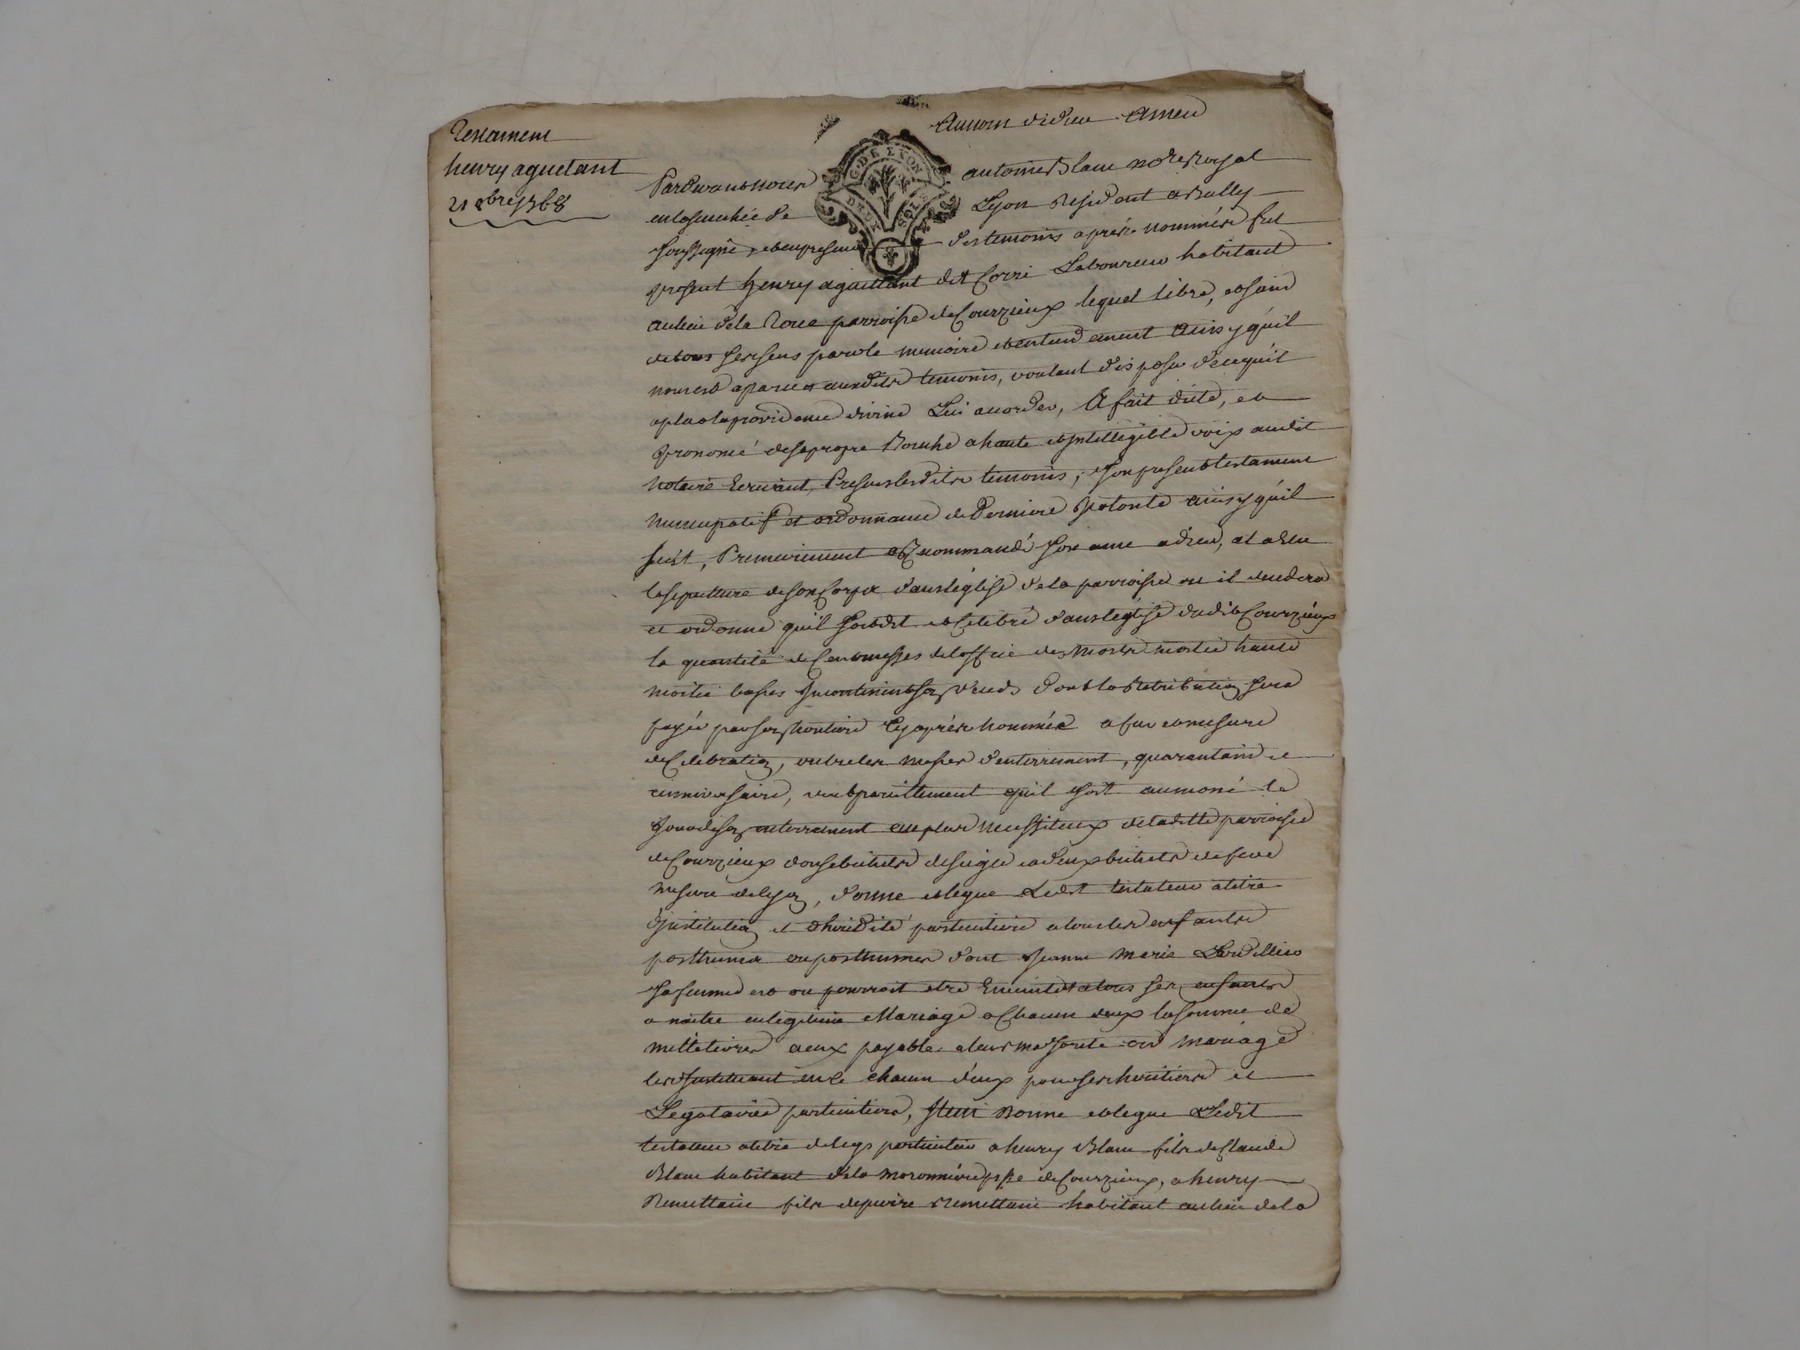 Testament
henry aguetant
21 8bre 1768
Au nom de dieu Amen
G. DE LYON
DEUX SOLS
Pardevant nous antoine Blanc nore Royal
en la senechée de Lyon Residant a Bully
soussigné, et en presence des temoins après nommés fut
present henry aguettant dit Corri Laboureur habitant
au lieu de la Roue parroisse de Courzieux lequel libre, et sain
de tous ses sens parole memoire et entendement ainsy qu'il
nous est aparu et auxdits temoins, voulant disposer de ce qu'il
a plu a la providence divine Lui accorder, A fait dicté, et
prononcé de sa propre Bouche a haute et Intelligible voix audit
Notaire Ecrivant, Presents lesdits temoins, son present testament
nuncupatif et ordonnance de Derniere Volonté ainsy qu'il
suit, Premierement a Recommandé son ame a dieu, et a élu
la sepulture de son Corps dans l'église de la parroisse ou il decedera
et ordonne qu'il soit dit et Celebré dans l'église dudit Courzieux
la quantité de Cent messes de l'office des Morts moitié haute
moitié basses Incontinent son decès dont la Retribution sera
payée par son heritiere Cy après nommée a fur et mesure
de Celebration, outre les messes d'enterrement, quarantaine et
anniversaire, veut pareillement qu'il soit aumoné le
jour de son enterrement aux plus necessiteux de laditte parroisse
de Courzieux douse bichets de seigle et deux bichets de feve
mesure de lyon, donne et legue Ledit testateur a titre
d'institution et d'heredité particuliere a tous les enfants
posthumes ou posthumes dont Jeanne Marie
sa femme est ou pourroit etre Enceinte et a tous ses enfants
a naitre en legitime Mariage a Chacun deux la somme de
mille livres a eux payable a leur majorité ou mariage
les Instituant en ce chacun d'eux pour ses heritiers et
Legataires particuliers, Item Donne et legue Ledit
testateur a titre de legs particulier a henry Blanc fils de Claude
Blanc habitant de la moronniere psse de Courzieux, a henry
Remettaire fils de pierre Remettaire habitant au lieu de la